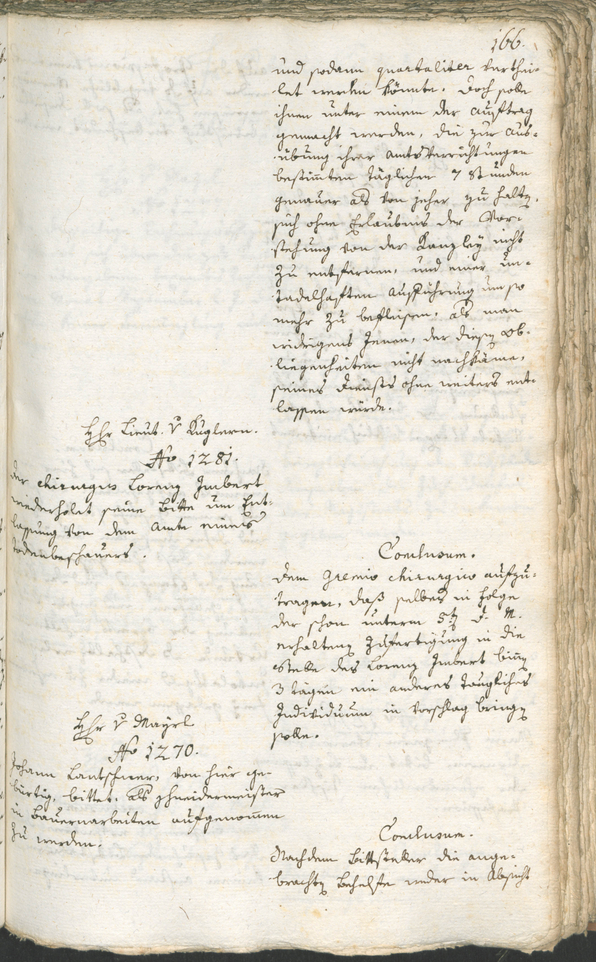 166.
und sodann quartaliter verthei-
let werden könnte. Doch solle
ihnen unter einem der Auftrag
gemacht werden, die zur Aus-
übung ihrer Amtsverrichtungen
bestimmten täglichen 7 Stunden
genauer als von jeher zu halten,
sich ohne Erlaubnis der Vor-
stehung von der Kanzley nicht
zu entfernen, und einer un-
tadelhaften Aufführung um so
mehr zu befleissen, als man
widrigens Jenen, der diesen Ob-
liegenheiten nicht nachkäme,
seines Diensts ohne weiters ent-
lassen würde.
Hr Lieut. v Kuglern.
No 1281.
Der chirurgus Lorenz Imbert
wiederholt seine Bitte um Ent-
lassung von dem Amte eines
Todenbeschauers.
Conclusum.
Dem Gremio chirurgico aufzu-
tragen, daß selbes in Folge
der schon unterm 5t d. M.
erhaltenen Zufertigung in die
Stelle des Lorenz Imbert binnen
3 Tägen ein anderes taugliches
Individuum in Vorschlag bringen
solle.
Hr v Mayrl
No 1270.
Johann Lantschner, von hier ge-
bürtig, bittet, als Schneidermeister
in Bauernarbeiten aufgenommen
zu werden.
Conclusum.
Nachdem Bittsteller die ange-
brachten Behelfe weder in Absicht